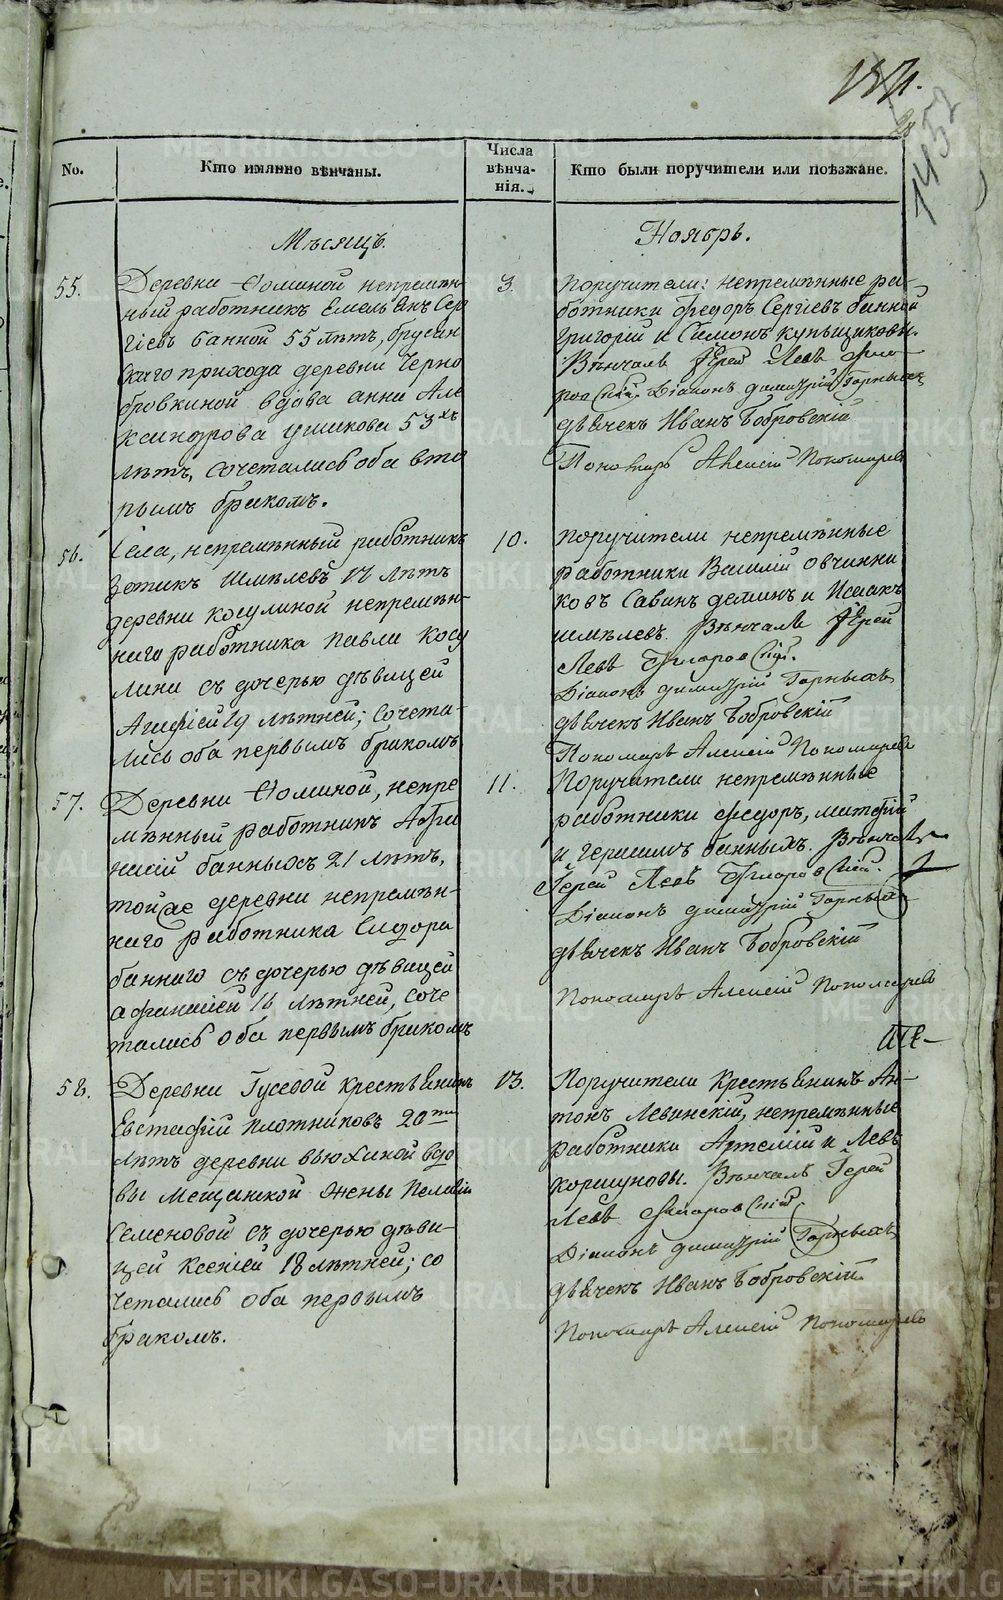 No.
Кто имянно вѣнчаны.
Числа
вѣнча-
нія.
Кто были поручители или поѣзжане.
Мѣсяцъ
Ноябрь.
55.
Деревни Ѳоминой непремѣн-
ный работникъ Емельянъ Сер
гіевъ банной 55 лѣтъ, брусян
скаго прихода деревни Черно
бровкиной вдова анна Але
ксандрова ушакова 53хъ
лѣтъ, сочетались оба вто
рымъ бракомъ.
3.
Поручители: непремѣнные ра-
ботники Ѳедоръ Сергіевъ банной
Григорій и Симонъ купьщиковы.
Вѣнчалъ Іерей Левъ Фла
ровскій Діаконъ димитрій Горныхъ
дьячекъ Иванъ Бобровскій
Пономарь Алексій Пономаревъ
56.
Села, непремѣнный работникъ
Зотикъ Шмѣлевъ 17 лѣтъ
деревни косулиной непремѣн-
наго работника павла Косу
лина съ дочерью дѣвицей
Агафіей 19 лѣтней; сочета-
лись оба первымъ бракомъ
10.
поручители непремѣнные
работники Василій овчинни
ковъ Савинъ деминъ и Исаакъ
шмѣлевъ. Вѣнчалъ Іерей
Левъ Флоровскій.
Діаконъ димитрій Горныхъ
дьячекъ Иванъ Бобровскій
Пономарь Алексій Пономаревъ
57.
Деревни Ѳоминой, непре
мѣнный работникъ Аѳа
насій банныхъ 21 лѣтъ,
той же деревни непремѣн-
наго работника Сидора
баннаго съ дочерью дѣвицей
аѳанасіей 16 лѣтней, соче
тались оба первымъ бракомъ
11.
Поручители непремѣнные
работники ѳедоръ, матѳій
и герасимъ банныхъ. Вѣнчалъ
Іерей Левъ Флоровскій.
Діаконъ димитрій Горныхъ
дьячекъ Иванъ Бобровскій
Пономарь Алексій Пономаревъ
58.
Деревни Гусевой крестьянинъ
Евстафій плотниковъ 20ти
лѣтъ деревни вьюхиной вдо
вы Мещанской жены пелагіи
Семеновой съ дочерью дѣви-
цей Ксеніей 18 лѣтней; со
четались оба первымъ
бракомъ.
13.
Поручители крестьянинъ Ан-
тонъ Левинскій, непремѣнные
работники Артемій и Левъ
коршуновы. Вѣнчалъ Іерей
Левъ Флоровскій.
Діаконъ димитрій Горныхъ
дьячекъ Иванъ Бобровскій
Пономарь Алексій Пономаревъ
METRIKI.GASO-URAL.RU